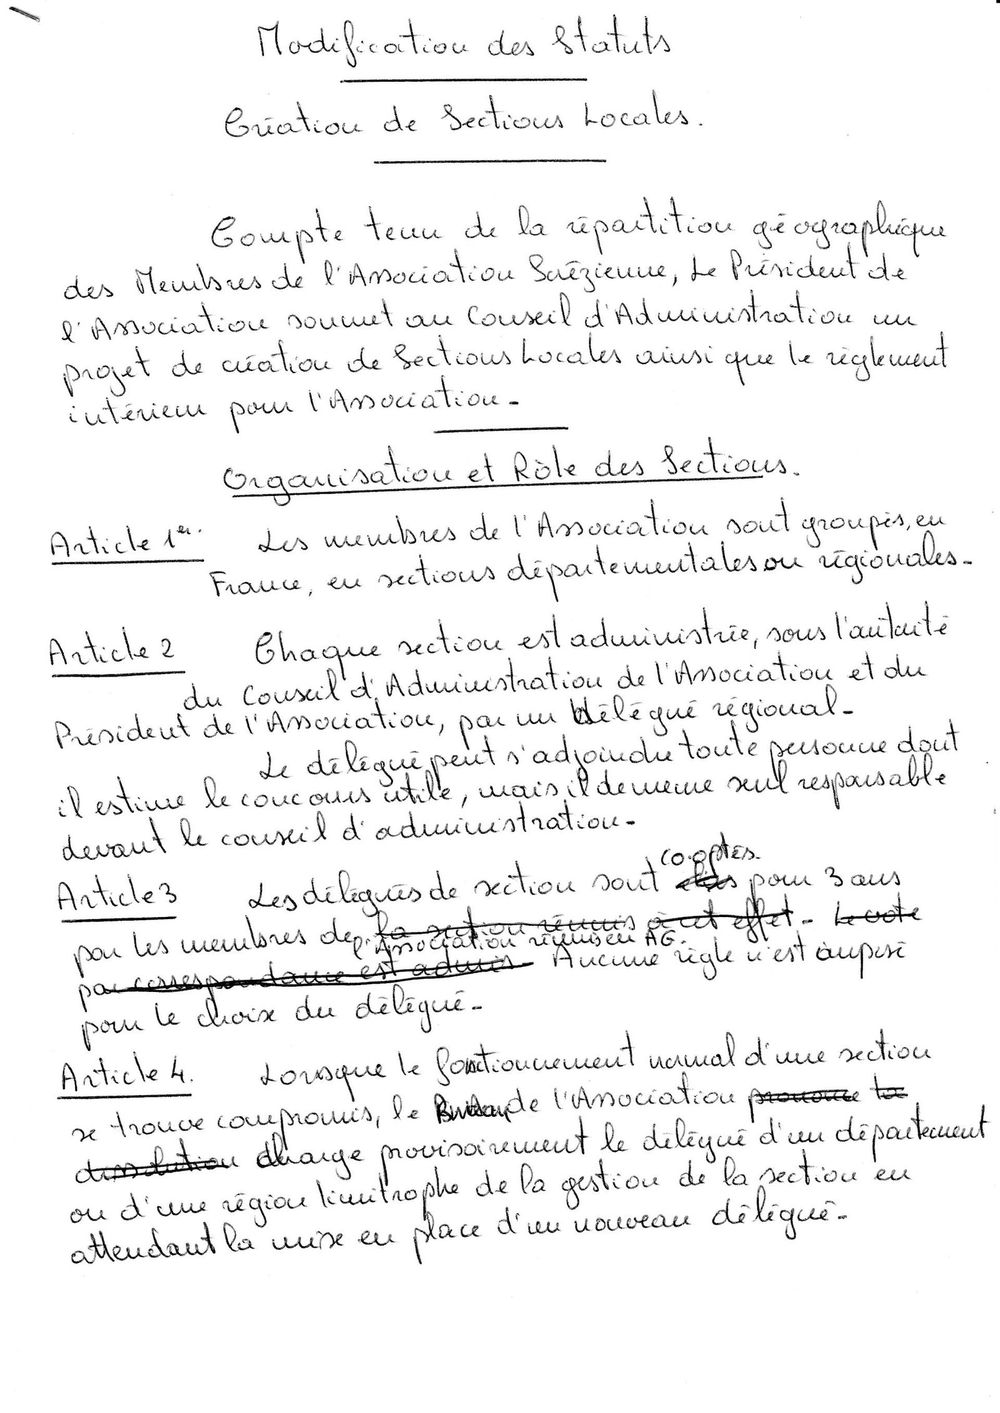 Modification des Statuts
Création de Sections Locales.
Compte tenu de la répartition géographique
des Membres de l'Association Scrézienne, Le Président de
l'Association soumet au Conseil d'Administration un
projet de création de Sections Locales ainsi que le règlement
intérieur pour l'Association -
Organisation et Rôle des Sections.
Article 1er. Les membres de l'Association sont groupés, en
France, en sections départementales ou régionales -
Article 2 Chaque section est administrée, sous l'autorité
du Conseil d'Administration de l'Association et du
Président de l'Association, par un délégué régional -
Le délégué peut s'adjoindre toute personne dont
il estime le concours utile, mais il demeure seul responsable
devant le conseil d'administration -
co.optés.
Article 3 Les délégués de section sont élus pour 3 ans
par les membres de la section réunis à cet effet - Le vote
l'Association réunis en AG.
par correspondance est admis - Aucune règle n'est imposée
pour le choix du délégué -
Article 4. Lorsque le fonctionnement normal d'une section
se trouve compromis, le Bureau de l'Association prononce la
dissolution charge provisoirement le délégué d'un département
ou d'une région limitrophe de la gestion de la section en
attendant la mise en place d'un nouveau délégué -